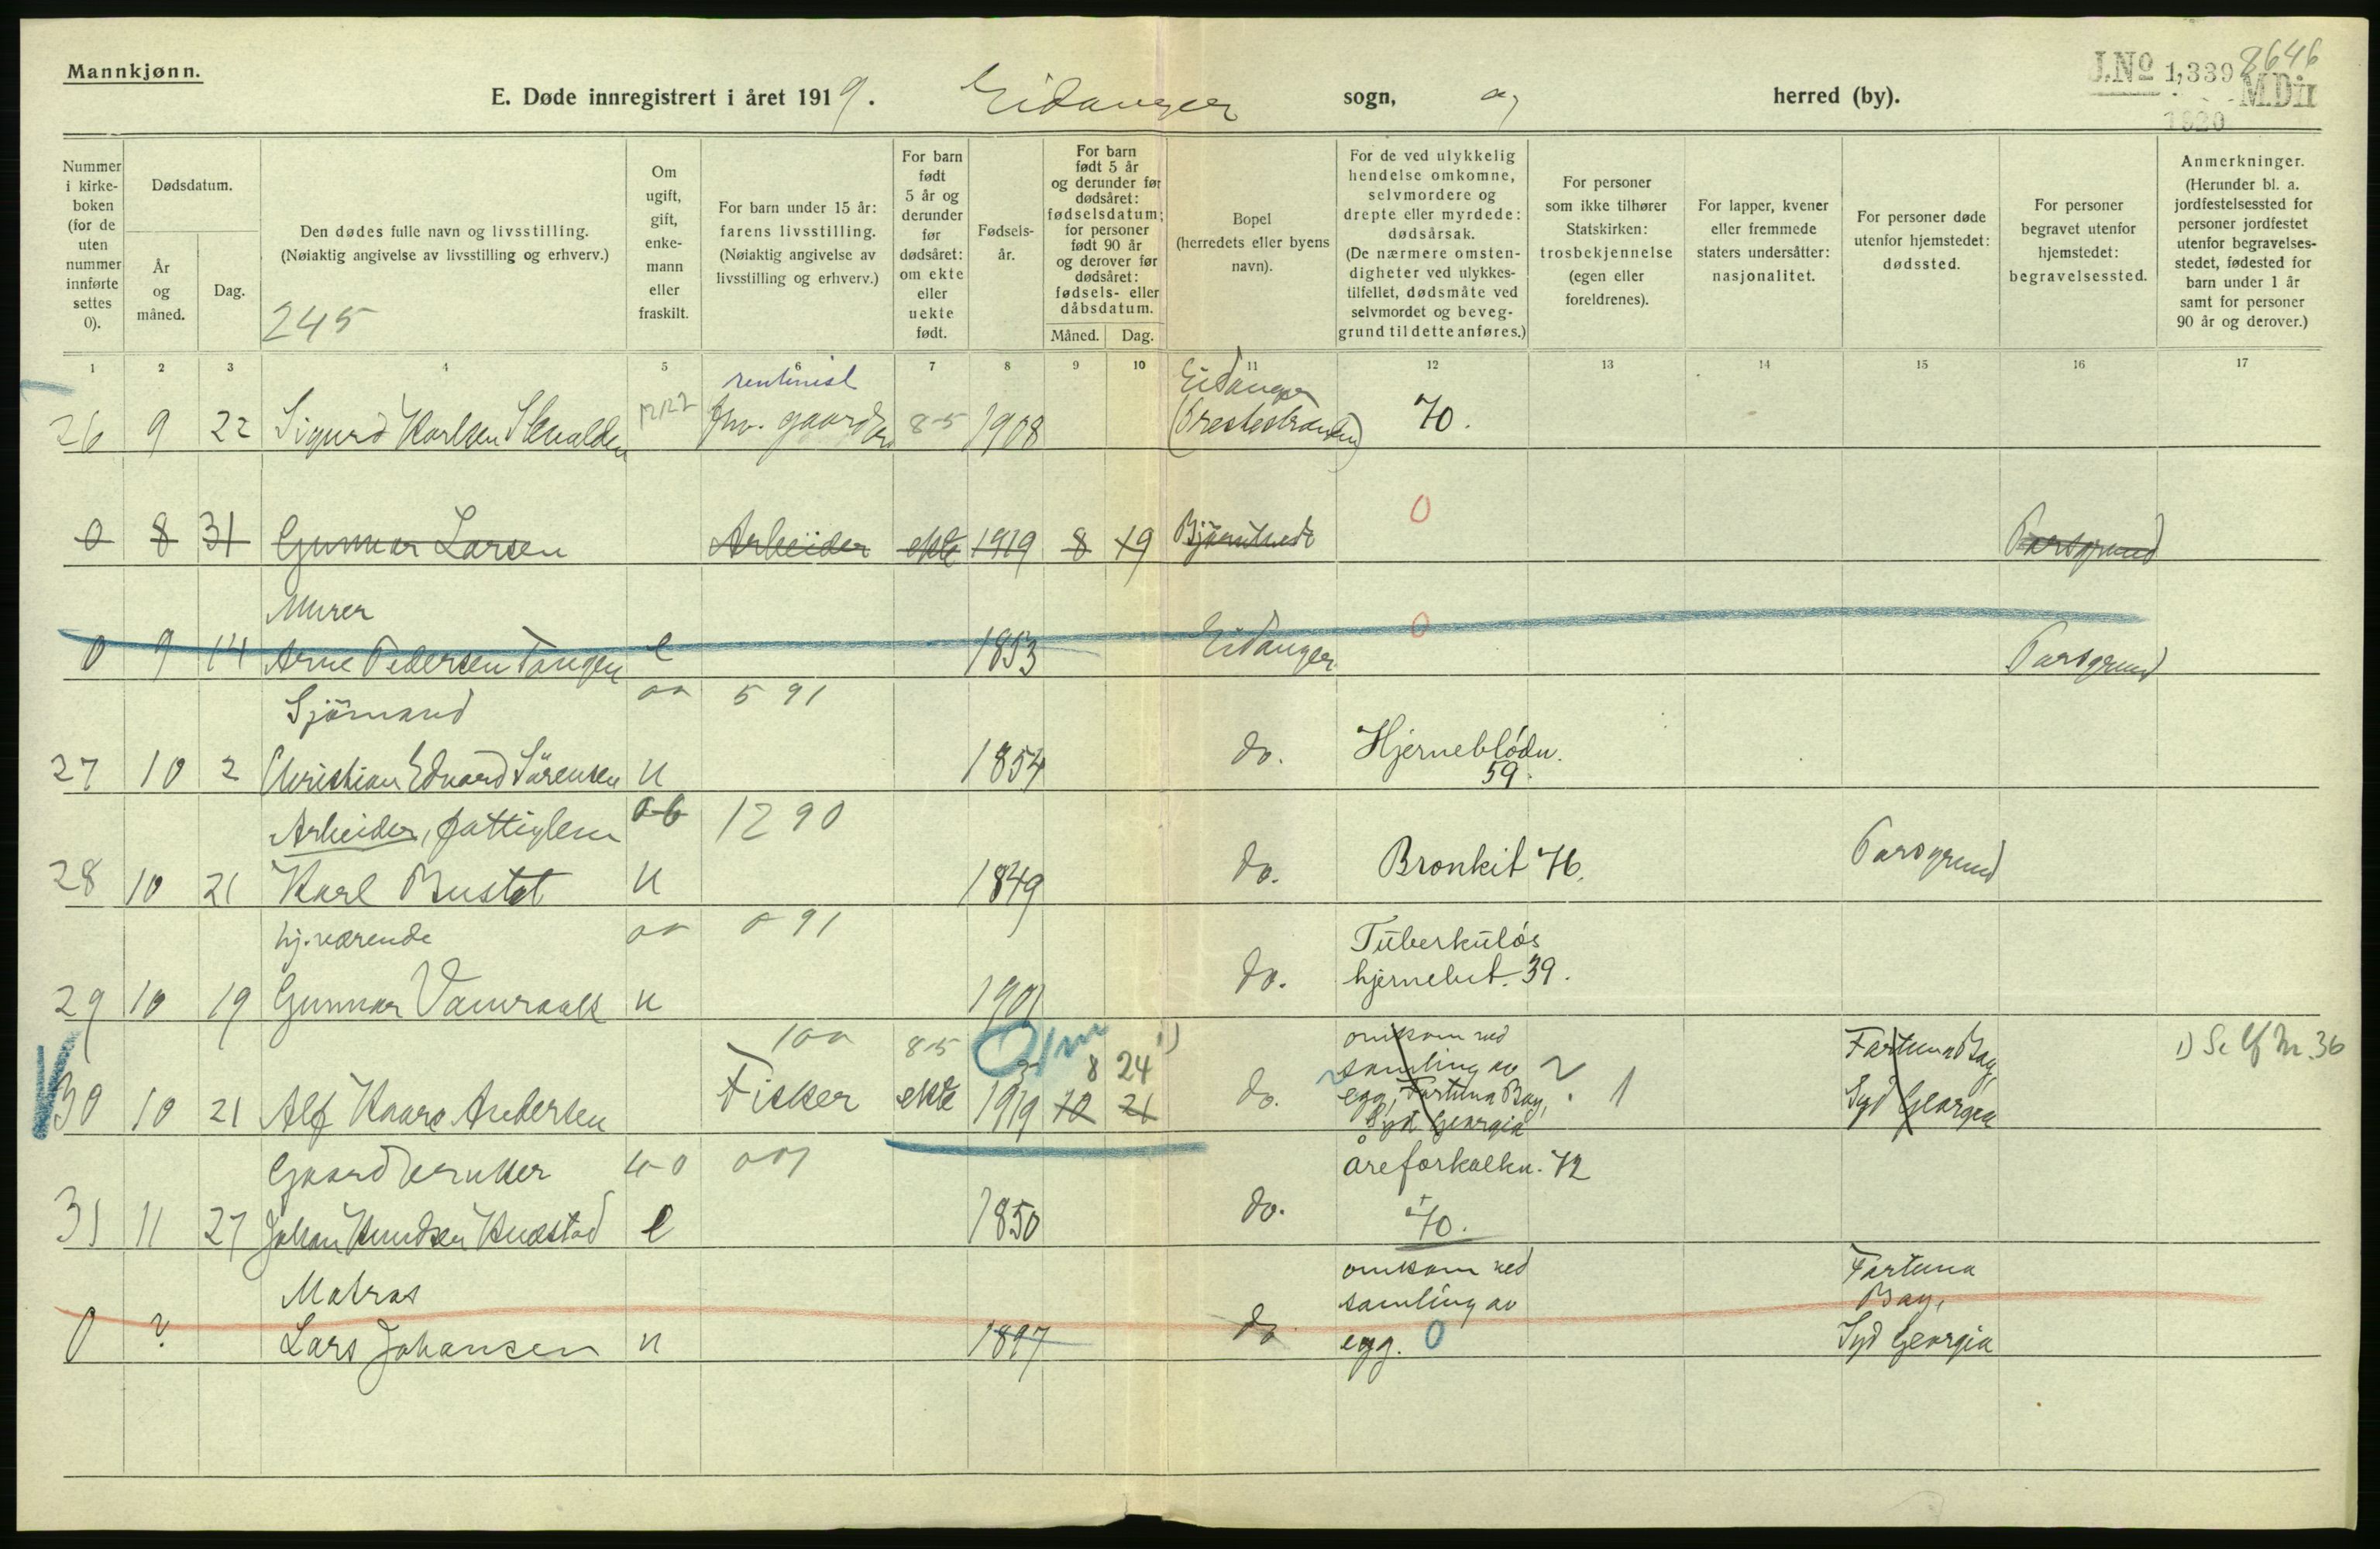 Mannkjønn.
J.No 1,339 8646
M.Dir
1920
E. Døde innregistrert i året 1919. Eidanger sogn, og herred (by).
Nummer i kirke-boken (for de uten nummer innførte settes 0).
Dødsdatum.
År og måned.
Dag.
Den dødes fulle navn og livsstilling.
(Nøiaktig angivelse av livsstilling og erhverv.)
245
Om ugift, gift, enke-mann eller fraskilt.
For barn under 15 år: farens livsstilling.
(Nøiaktig angivelse av livsstilling og erhverv.)
For barn født 5 år og derunder før dødsåret: om ekte eller uekte født.
Fødsels-år.
For barn født 5 år og derunder før dødsåret: fødselsdatum; for personer født 90 år og derover før dødsåret: fødsels- eller dåbsdatum.
Måned. Dag.
Bopel (herredets eller byens navn).
For de ved ulykkelig hendelse omkomne, selvmordere og drepte eller myrdede: dødsårsak.
(De nærmere omsten-digheter ved ulykkes-tilfellet, dødsmåte ved selvmordet og beveg-grund til dette anføres.)
For personer som ikke tilhører Statskirken: trosbekjennelse (egen eller foreldrenes).
For lapper, kvener eller fremmede staters undersåtter: nasjonalitet.
For personer døde utenfor hjemstedet: dødssted.
For personer begravet utenfor hjemstedet: begravelsessted.
Anmerkninger.
(Herunder bl. a. jordfestelsessted for personer jordfestet utenfor begravelses-stedet, fødested for barn under 1 år samt for personer 90 år og derover.)
1 2 3 4 5 6 7 8 9 10 11 12 13 14 15 16 17
Eidanger
26 9 22 Sigurd Karlsen 8-5 1908 70.
0 8 31 Gunnar Larsen Arbeider ekte 1919 8 19 0 Porsgrund
Murer
0 9 14 Arne Pedersen Tangen e 1853 Eidanger 0 Porsgrund
Sjömand 5 91
27 10 2 Christian Edvard Sörensen u 1854 do. Hjerneblödn.
59.
Arbeider, fattiglem 12 90
28 10 21 Karl u 1849 do. Bronkit 76. Porsgrund
hj.værende 0 91 Tüberkülós
29 10 19 Gunnar u 1901 do. hjernebet. 39.
8-5 omkom ved
8 24 1) samling av Fortuna Bay, 1) Se lf Nr. 36
30 10 21 Alf Kaare Andersen Fisker ekte 1919 10 21 do. egg, Fortuna Bay, 1 Syd Georgia
Syd Georgia
Gaardbruker åreforkalkn. 72
31 11 27 Johan Knudsen e 1850 do. 70.
omkom ved Fortuna
Matros samling av Bay,
0 ? Lars Johansen u 1897 do egg. 0 Syd Georgia